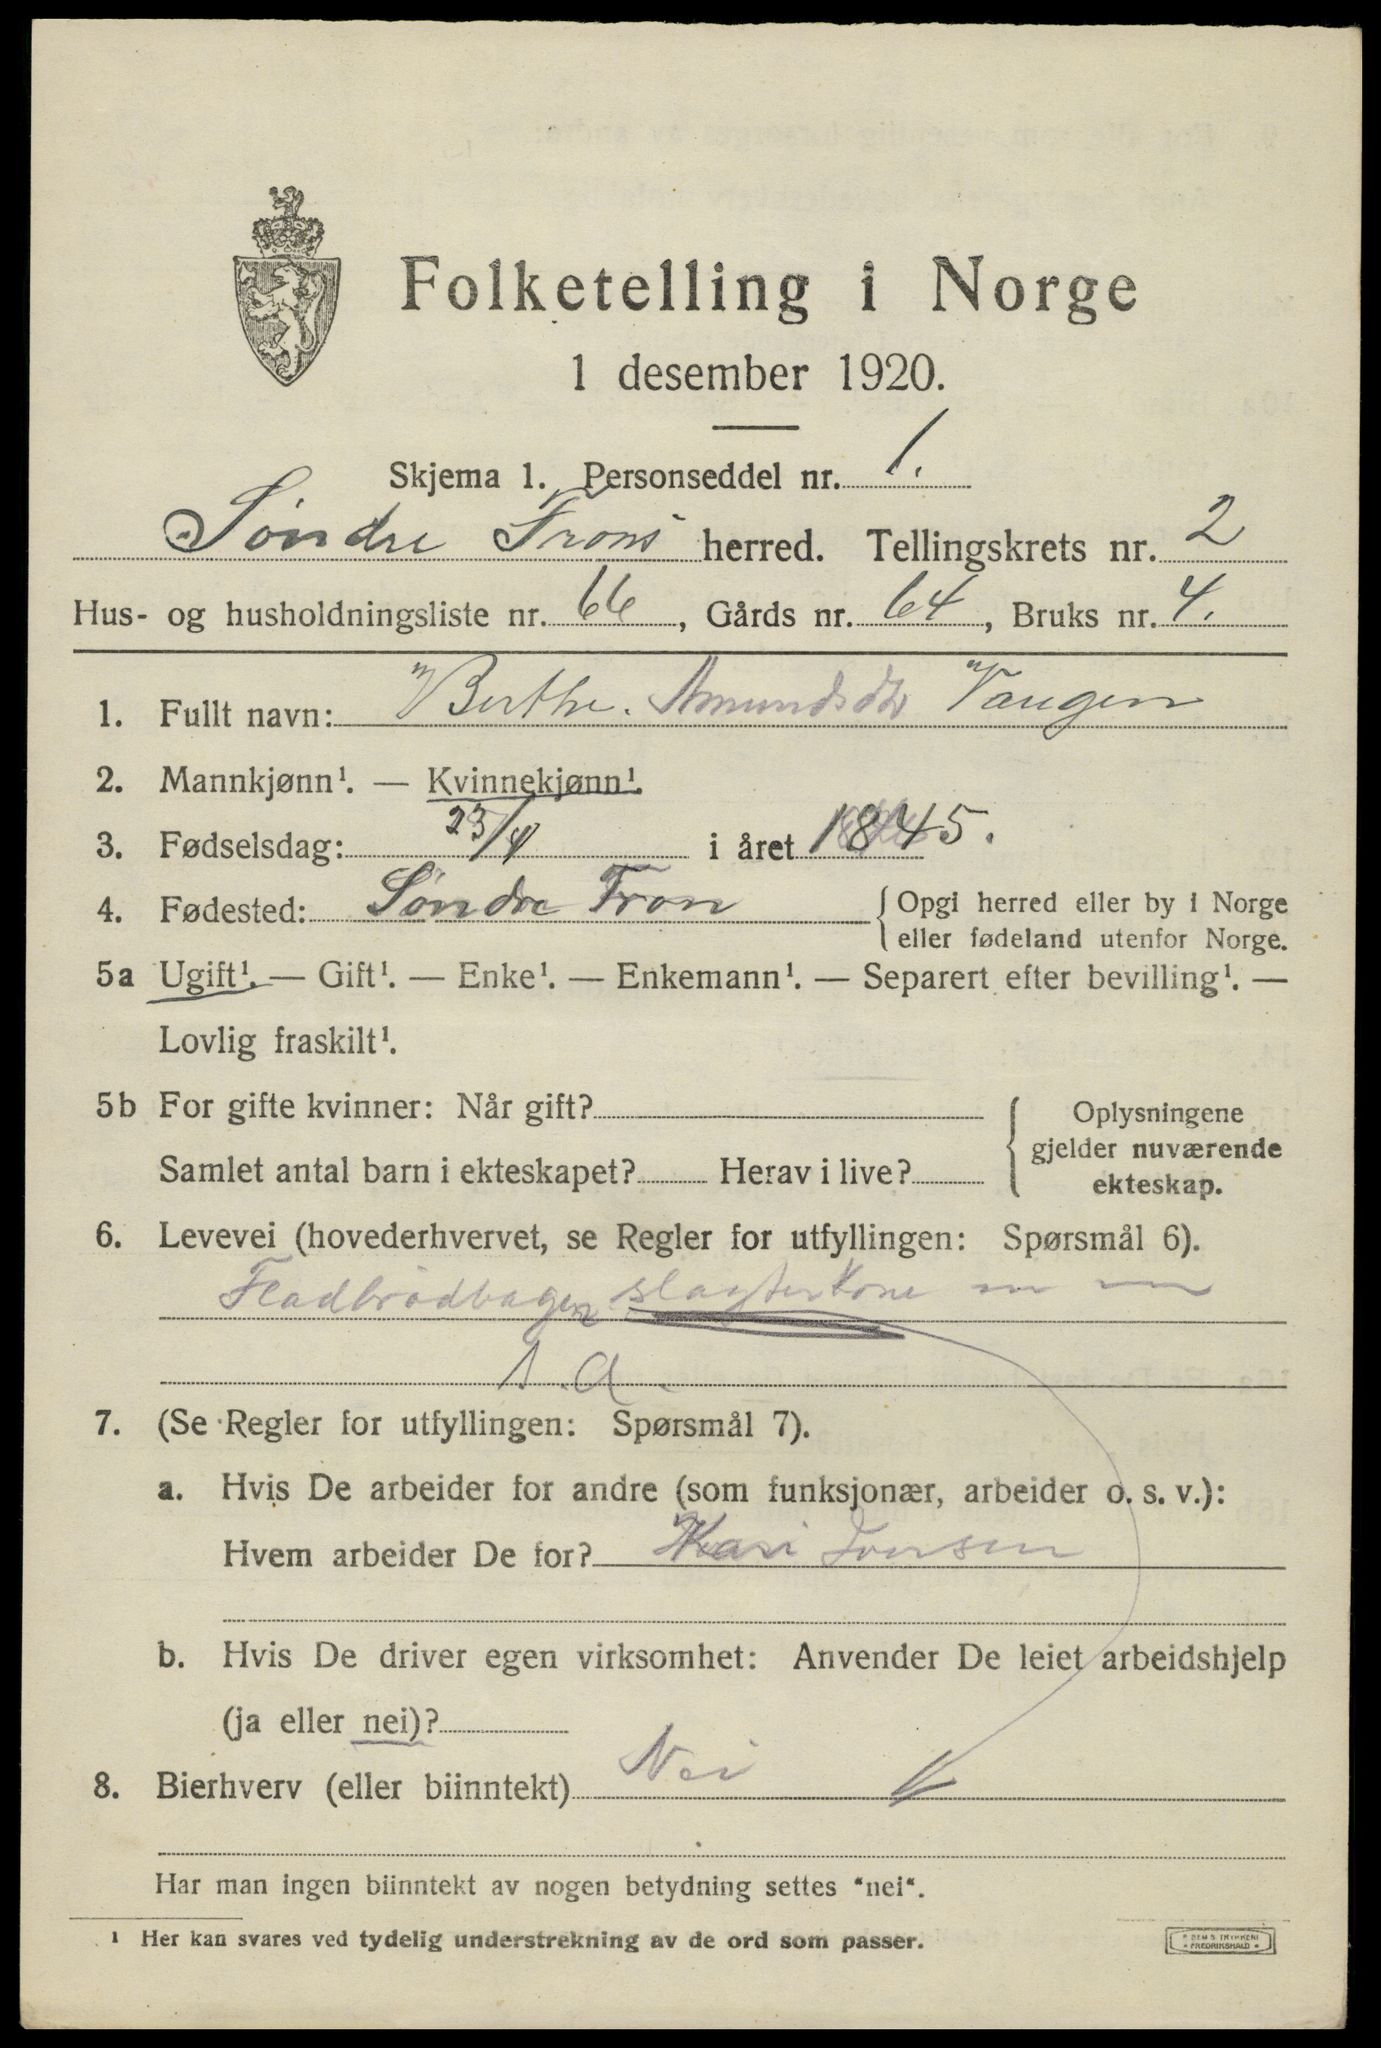 Folketelling i Norge
1 desember 1920.
Skjema 1. Personseddel nr. 1.
Søndre Frons herred. Tellingskrets nr. 2
Hus- og husholdningsliste nr. 66, Gårds nr. 64, Bruks nr. 4.
1. Fullt navn: Berthe. Amundsdtr Vangen
2. Mannkjønn¹. — Kvinnekjønn¹.
3. Fødselsdag: 23/4 i året 1845.
4. Fødested: Søndre Fron { Opgi herred eller by i Norge
eller fødeland utenfor Norge.
5a Ugift¹. — Gift¹. — Enke¹. — Enkemann¹. — Separert efter bevilling¹. —
Lovlig fraskilt¹.
5b For gifte kvinner: Når gift? { Oplysningene
gjelder nuværende
ekteskap.
Samlet antal barn i ekteskapet? Herav i live?
6. Levevei (hovederhvervet, se Regler for utfyllingen: Spørsmål 6).
Fladbrødbagen slagterkone
A.
7. (Se Regler for utfyllingen: Spørsmål 7).
a. Hvis De arbeider for andre (som funksjonær, arbeider o. s. v.):
Hvem arbeider De for? Kari Iversen
b. Hvis De driver egen virksomhet: Anvender De leiet arbeidshjelp
(ja eller nei)?
8. Bierhverv (eller biinntekt) Nei
Har man ingen biinntekt av nogen betydning settes "nei".
¹ Her kan svares ved tydelig understrekning av de ord som passer.
FREDRIKSHALD